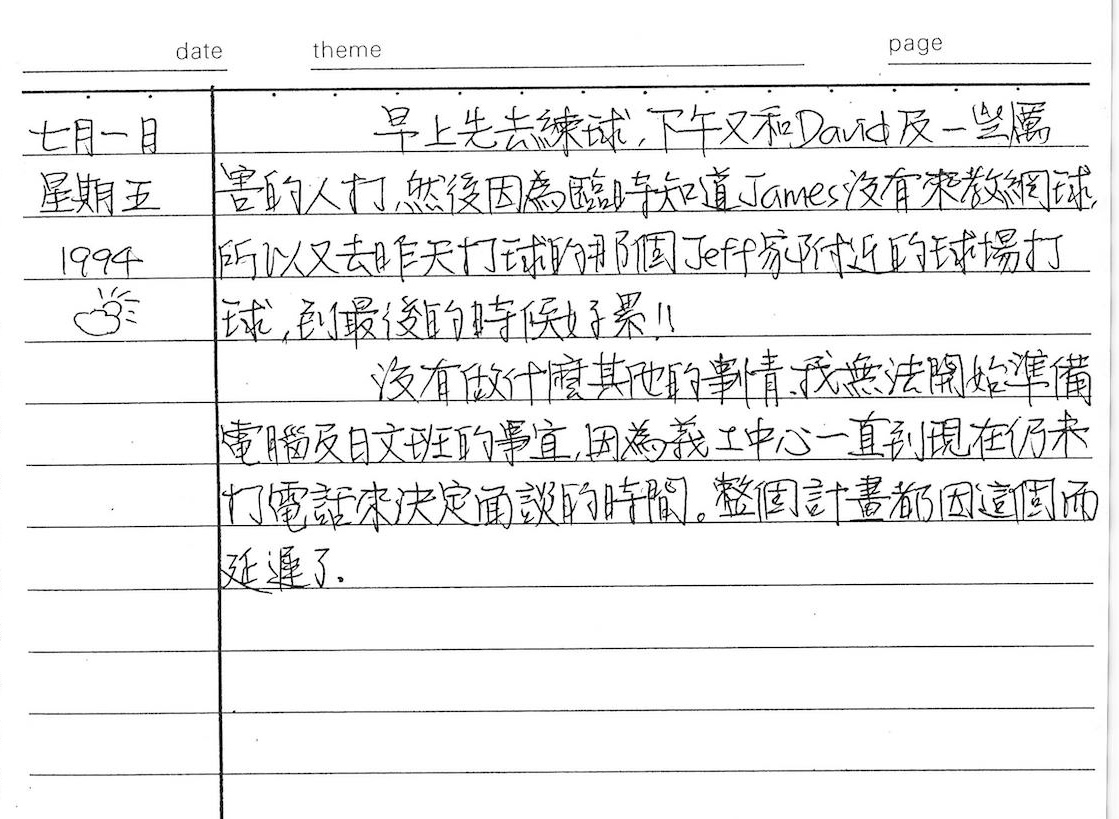 date theme page
七月一日
星期五
1994
早上先去練球,下午又和David及一些厲
害的人打,然後因為臨時知道James沒有來教網球,
所以又去昨天打球的那個Jeff家附近的球場打
球,到最後的時候好累!!
沒有做什麼其他的事情,我無法開始準備
電腦及日文班的事宜,因為義工中心一直到現在仍未
打電話來決定面談的時間。整個計畫都因這個而
延遲了.